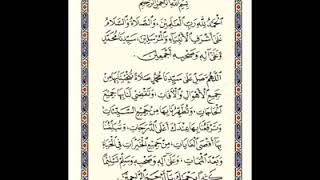 بِسْمِ اللَّهِ الرَّحْمَٰنِ الرَّحِيمِ
الْحَمْدُ لِلَّهِ رَبِّ الْعَالَمِينَ، وَالصَّلَاةُ وَالسَّلَامُ
عَلَى أَشْرَفِ الْأَنْبِيَاءِ وَالْمُرْسَلِينَ سَيِّدِنَا مُحَمَّدٍ
وَعَلَى آلِهِ وَصَحْبِهِ أَجْمَعِينَ.
اللَّهُمَّ صَلِّ عَلَى سَيِّدِنَا مُحَمَّدٍ صَلَاةً تُنْجِينَا بِهَا مِنْ
جَمِيعِ الْأَهْوَالِ وَالْآفَاتِ، وَتَقْضِي لَنَا بِهَا جَمِيعَ
الْحَاجَاتِ، وَتُطَهِّرُنَا بِهَا مِنْ جَمِيعِ السَّيِّئَاتِ
وَتَرْفَعُنَا بِهَا عِنْدَكَ أَعْلَى الدَّرَجَاتِ، وَتُبَلِّغُنَا
بِهَا أَقْصَى الْغَايَاتِ، مِنْ جَمِيعِ الْخَيْرَاتِ فِي الْحَيَاةِ
وَبَعْدَ الْمَمَاتِ، وَعَلَى آلِهِ وَصَحْبِهِ وَسَلِّمْ تَسْلِيمًا